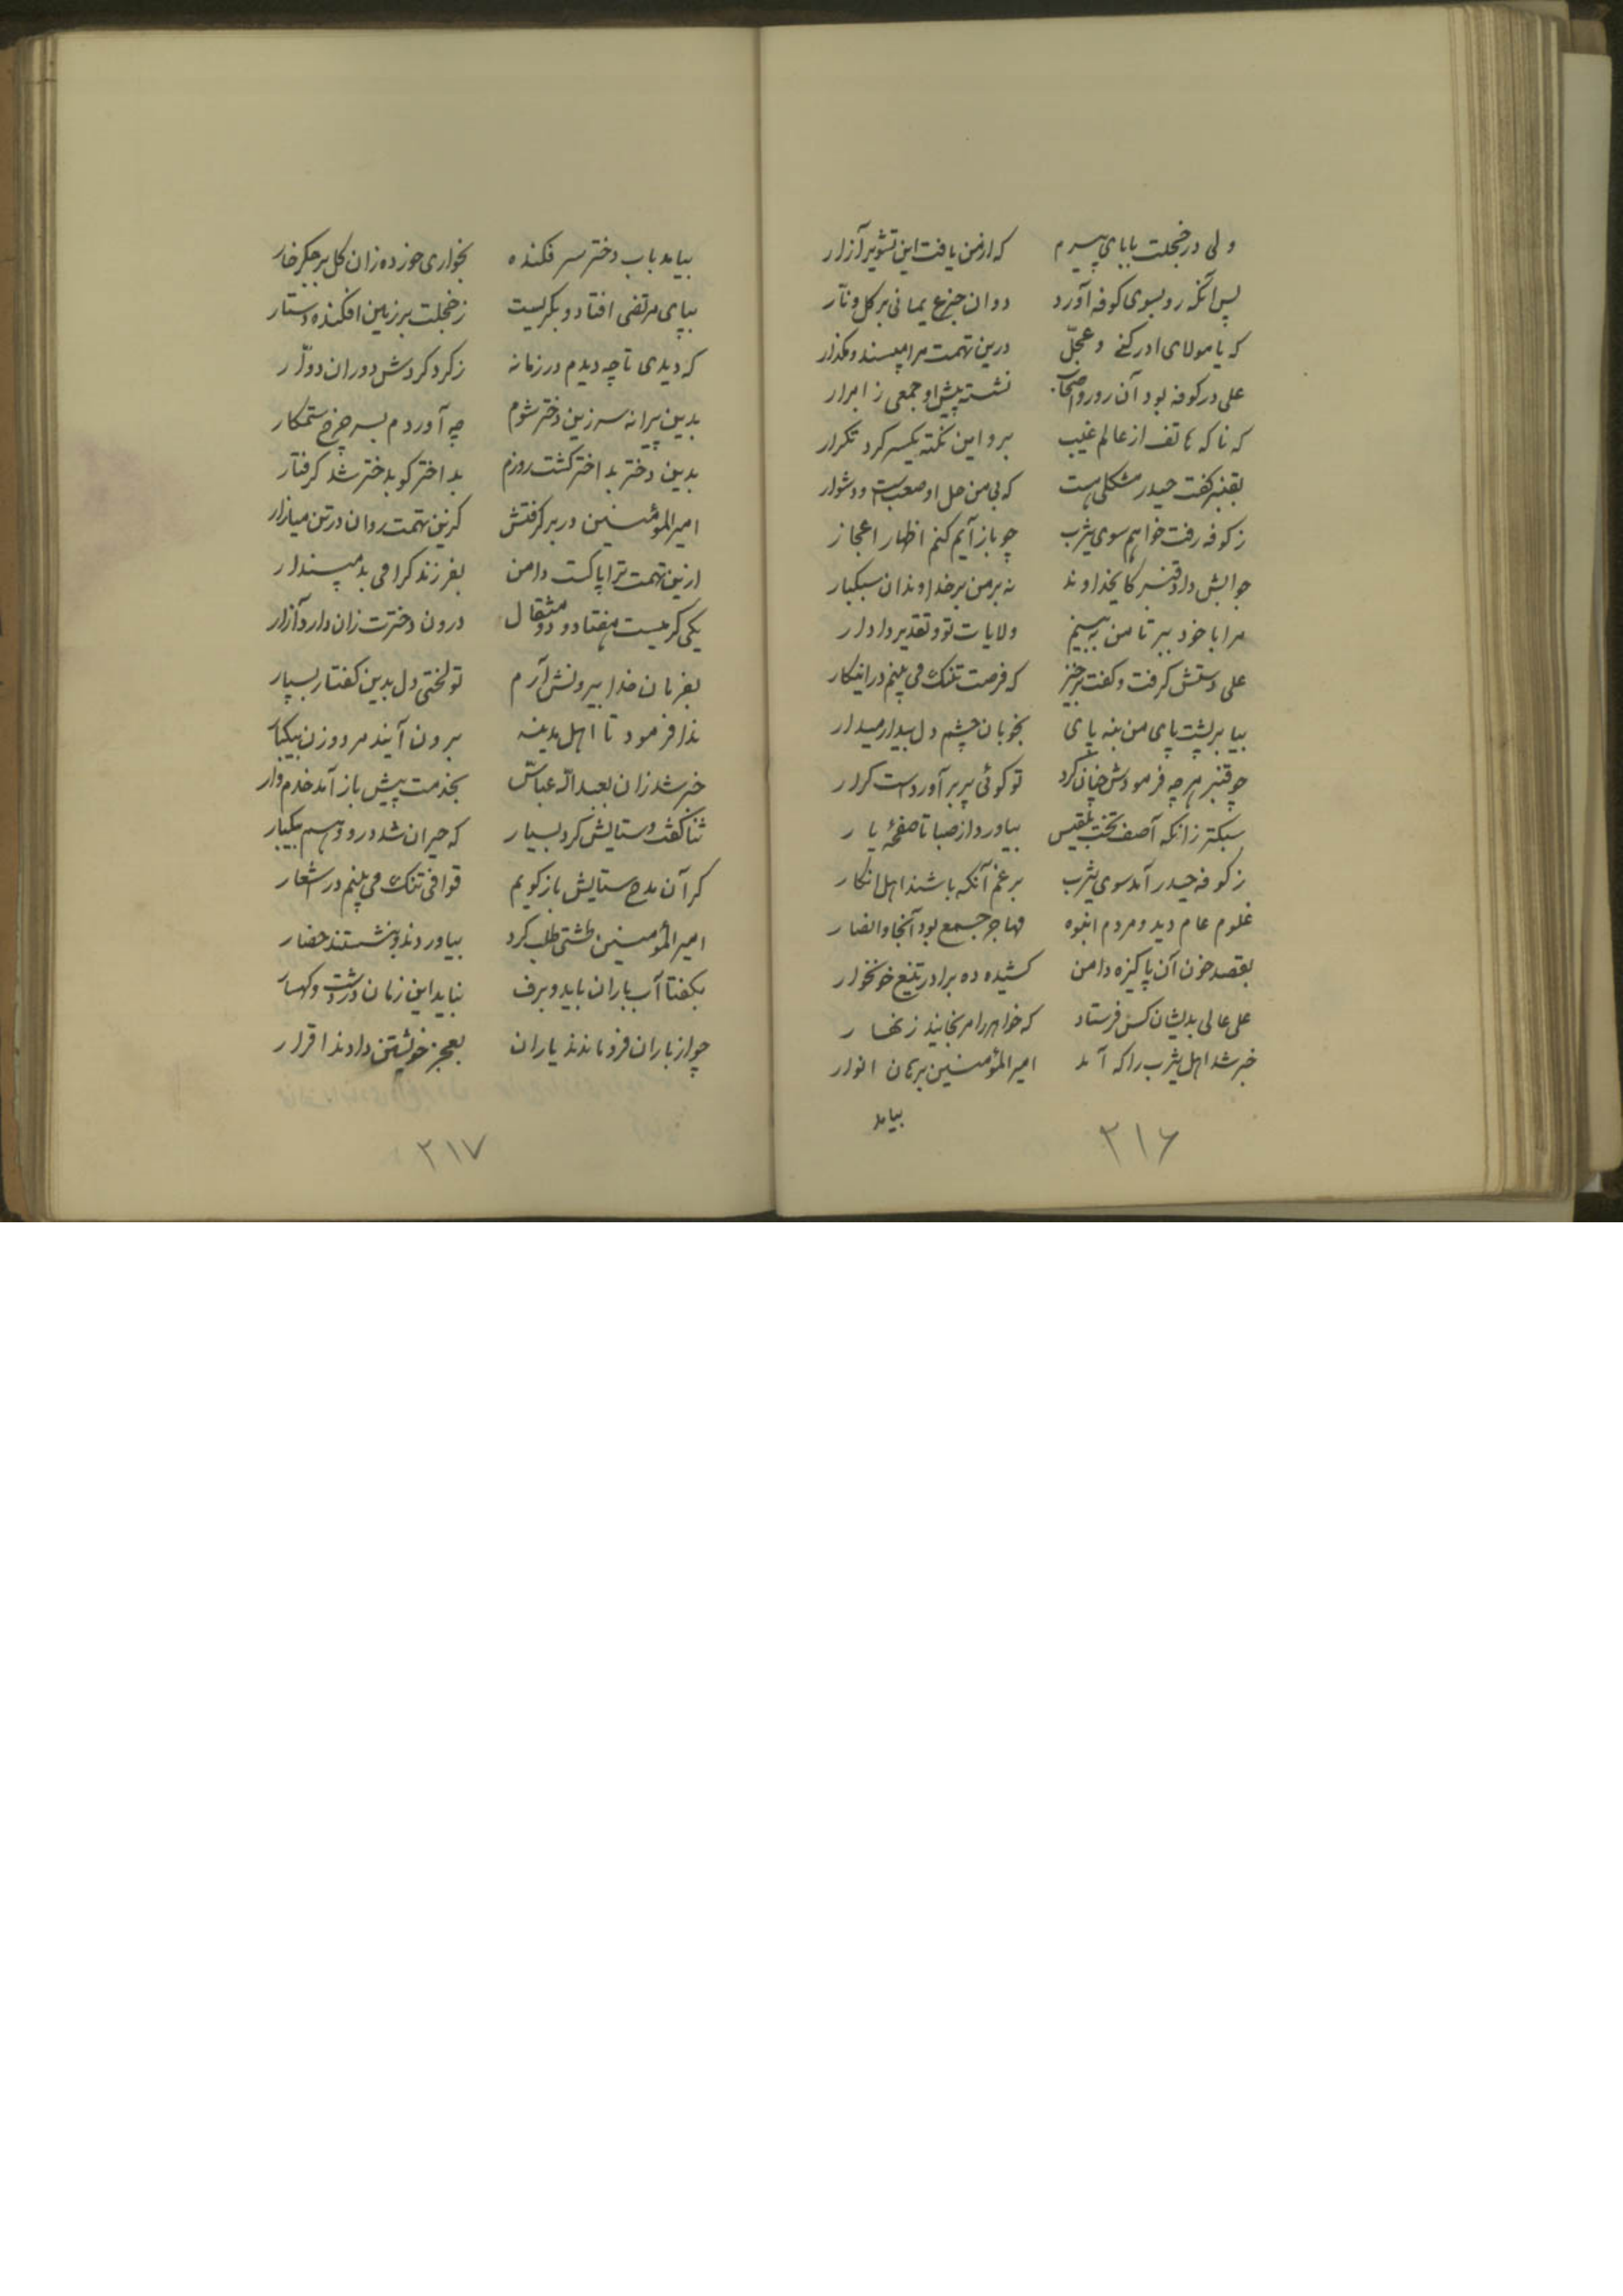 ولی در خجلت بابای پیرم که از من یافت این تشویر آزار
پس آنگه رو بسوی کوفه آورد دوان جزع یمانی بر گل و نار
که یا مولای ادرکنی و عجّل درین تهمت مرا مپسند و مگذار
علی در کوفه بود آن روز و اصحاب نشسته پیش او جمعی ز ابرار
که ناگه هاتف از عالم غیب برو این نکته یکسر کرد تکرار
بقنبر گفت حیدر مشکلی هست که بی من حل او صعبست و دشوار
ز کوفه رفت خواهم سوی یثرب چو باز آیم کنم اظهار اعجاز
جوابش داد قنبر کایخداوند نه بر من بر خداوندان سبکبار
مرا با خود ببر تا من ببینم ولایات تو و تقدیر دادار
علی دستش گرفت و گفت برخیز که فرصت تنک می بینم در اینکار
بیا بر پشت پای من بنه پای بخوبان چشم دل بیدار میدار
چو قنبر هر چه فرمودش چنان کرد تو گوئی پر برآوردست کردار
سبکتر زانکه آصف تخت بلقیس بیاورد از صبا تا صفحهٔ یار
ز کوفه حیدر آمد سوی یثرب برغم آنکه باشند اهل انکار
غلوم عام دید و مردم انبوه مهاجر جمع بود آنجا و انصار
بقصد خون آن پاکیزه دامن کشیده ده برادر تیغ خونخوار
علی عالی بدیشان کس فرستاد که خواهر را مرنجانید زنهار
خبر شد اهل یثرب را که آمد امیرالمؤمنین برهان انوار
بیامد
۲۱۶
بیامد باب دختر سرفکنده بخواری خورده زان گل بر جگر خار
بپای مرتضی افتاد و بگریست ز خجلت بر زمین افکنده دستار
که دیدی تا چه دیدم در زمانه ز گرد گردش دوران دوّار
بدین پیرانه سر زین دختر شوم چه آوردم بسر چرخ ستمکار
بدین دختر بد اختر گشت روزم بد اختر کو بدختر شد گرفتار
امیرالمؤمنین در بر گرفتش کزین تهمت روان در تن میازار
ازین تهمت ترا پاکست دامن بفرزند گرامی بد مپندار
یکی کرمیست هفتاد و دو مثقال درون دخترت زان دارد آزار
بفرمان خدا بیرونش آرم تو لختی دل بدین گفتار بسپار
ندا فرمود تا اهل مدینه برون آیند مرد و زن بیکبار
خبر شد زان بعبدالله عباس بخدمت پیش باز آمد خدم وار
ثنا گفت و ستایش کرد بسیار که حیران شد درو وهم بیکبار
گر آن مدح ستایش باز گویم قوافی تنک می بینم در اشعار
امیرالمؤمنین طشتی طلب کرد بیاوردند و بنشستند حضار
بگفتا آب باران باید و برف نباید این زمان در دشت و کهسار
چو از باران فرو ماندند یاران بعجز خویشتن دادند اقرار
۲۱۷